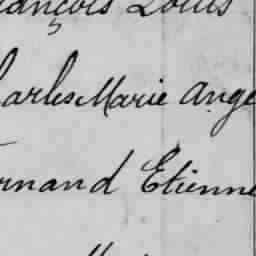 ançois Louis
harles Marie Ange
rnand Etienne